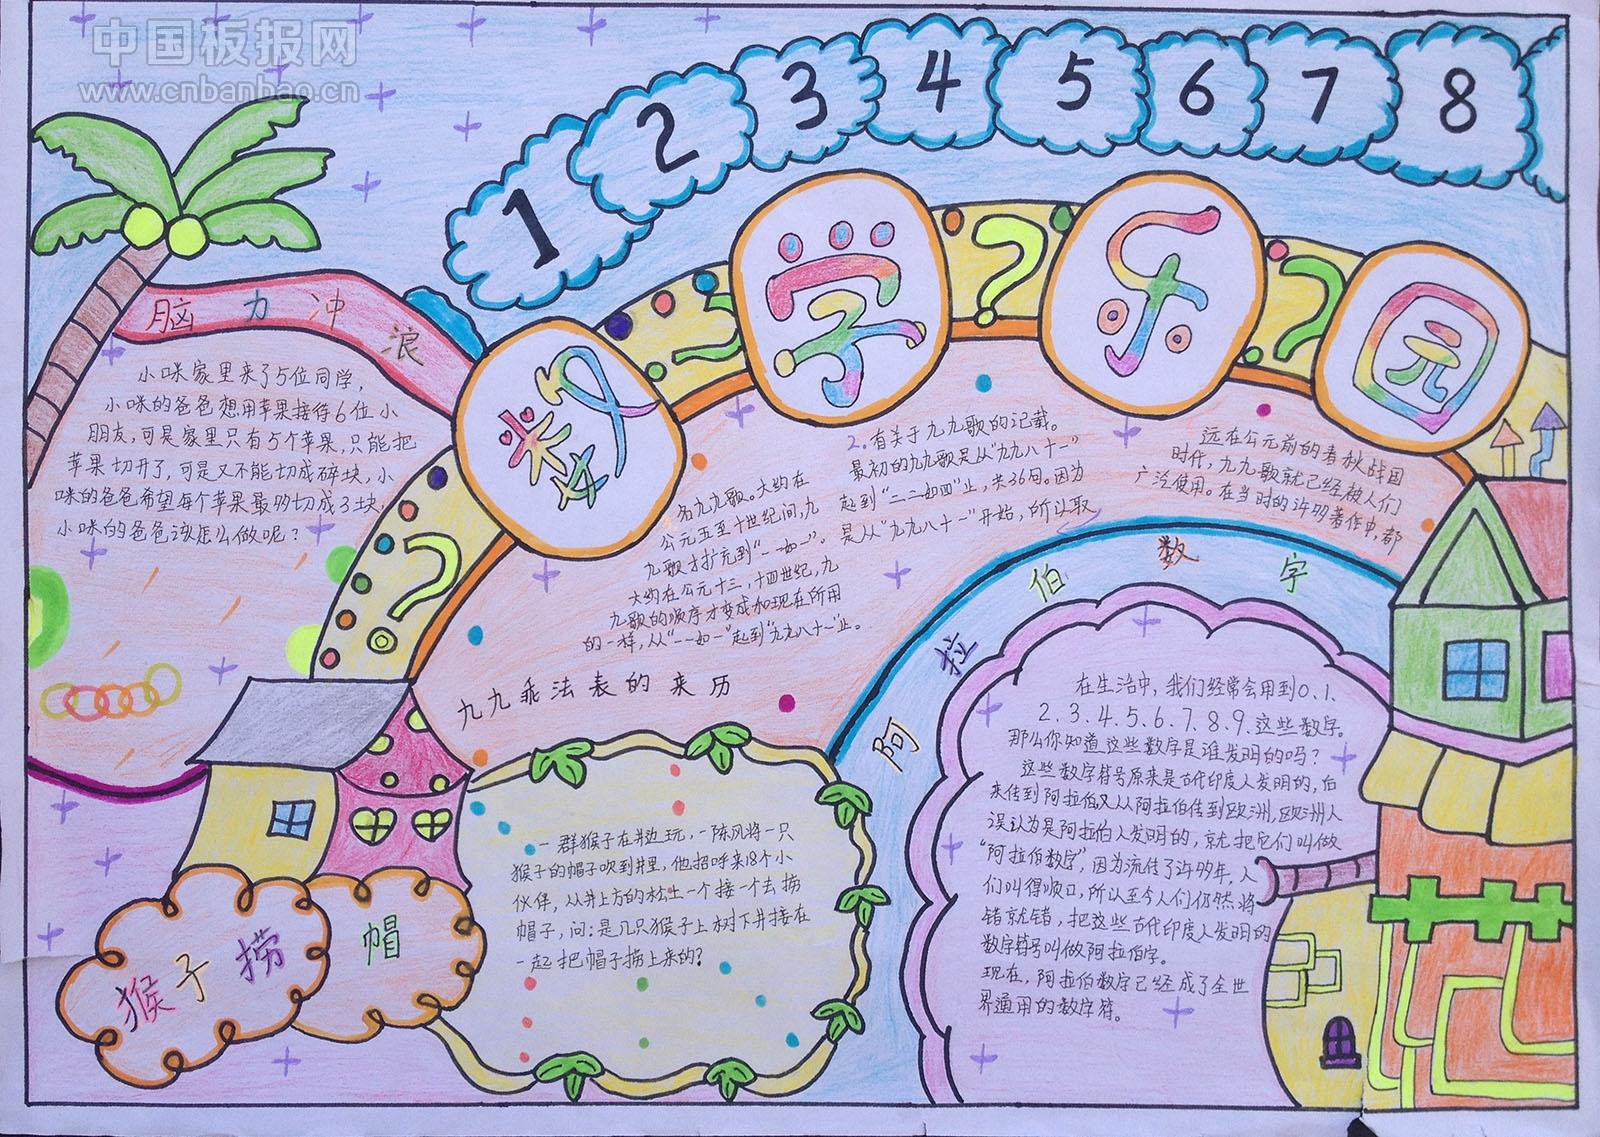 中国板报网
www.cnbanbao.cn
1 2 3 4 5 6 7 8
数学乐园
脑力冲浪
小咪家里来了5位同学，
小咪的爸爸想用苹果接待6位小
朋友，可是家里只有5个苹果，只能把
苹果切开了，可是又不能切成碎块，小
咪的爸爸希望每个苹果最多切成3块，
小咪的爸爸该怎么做呢？
九九乘法表的来历
远在公元前的春秋战国
时代，九九歌就已经被人们
广泛使用。在当时的许多著作中，都
2.有关于九九歌的记载。
最初的九九歌是从“九九八十一”
起到“二二如四”止，共36句。因为
是从“九九八十一”开始，所以取
名九九歌。大约在
公元五至十世纪间，九
九歌才扩充到“一一如一”。
大约在公元十三，十四世纪，九
九歌的顺序才变成和现在所用
的一样，从“一一如一”起到“九九八十一”止。
猴子捞帽
一群猴子在井边玩，一阵风将一只
猴子的帽子吹到井里，他招呼来18个小
伙伴，从井上方的松土一个接一个去捞
帽子，问：是几只猴子上树下井接在
一起把帽子捞上来的？
阿拉伯数字
在生活中，我们经常会用到0.1.
2.3.4.5.6.7.8.9.这些数字。
那么你知道这些数字是谁发明的吗？
这些数字符号原来是古代印度人发明的，后
来传到阿拉伯又从阿拉伯传到欧洲，欧洲人
误认为是阿拉伯人发明的，就把它们叫做
“阿拉伯数字”，因为流传了许多年，人
们叫得顺口，所以至今人们仍然将
错就错，把这些古代印度人发明的
数字符号叫做阿拉伯字。
现在，阿拉伯数字已经成了全世
界通用的数字符。